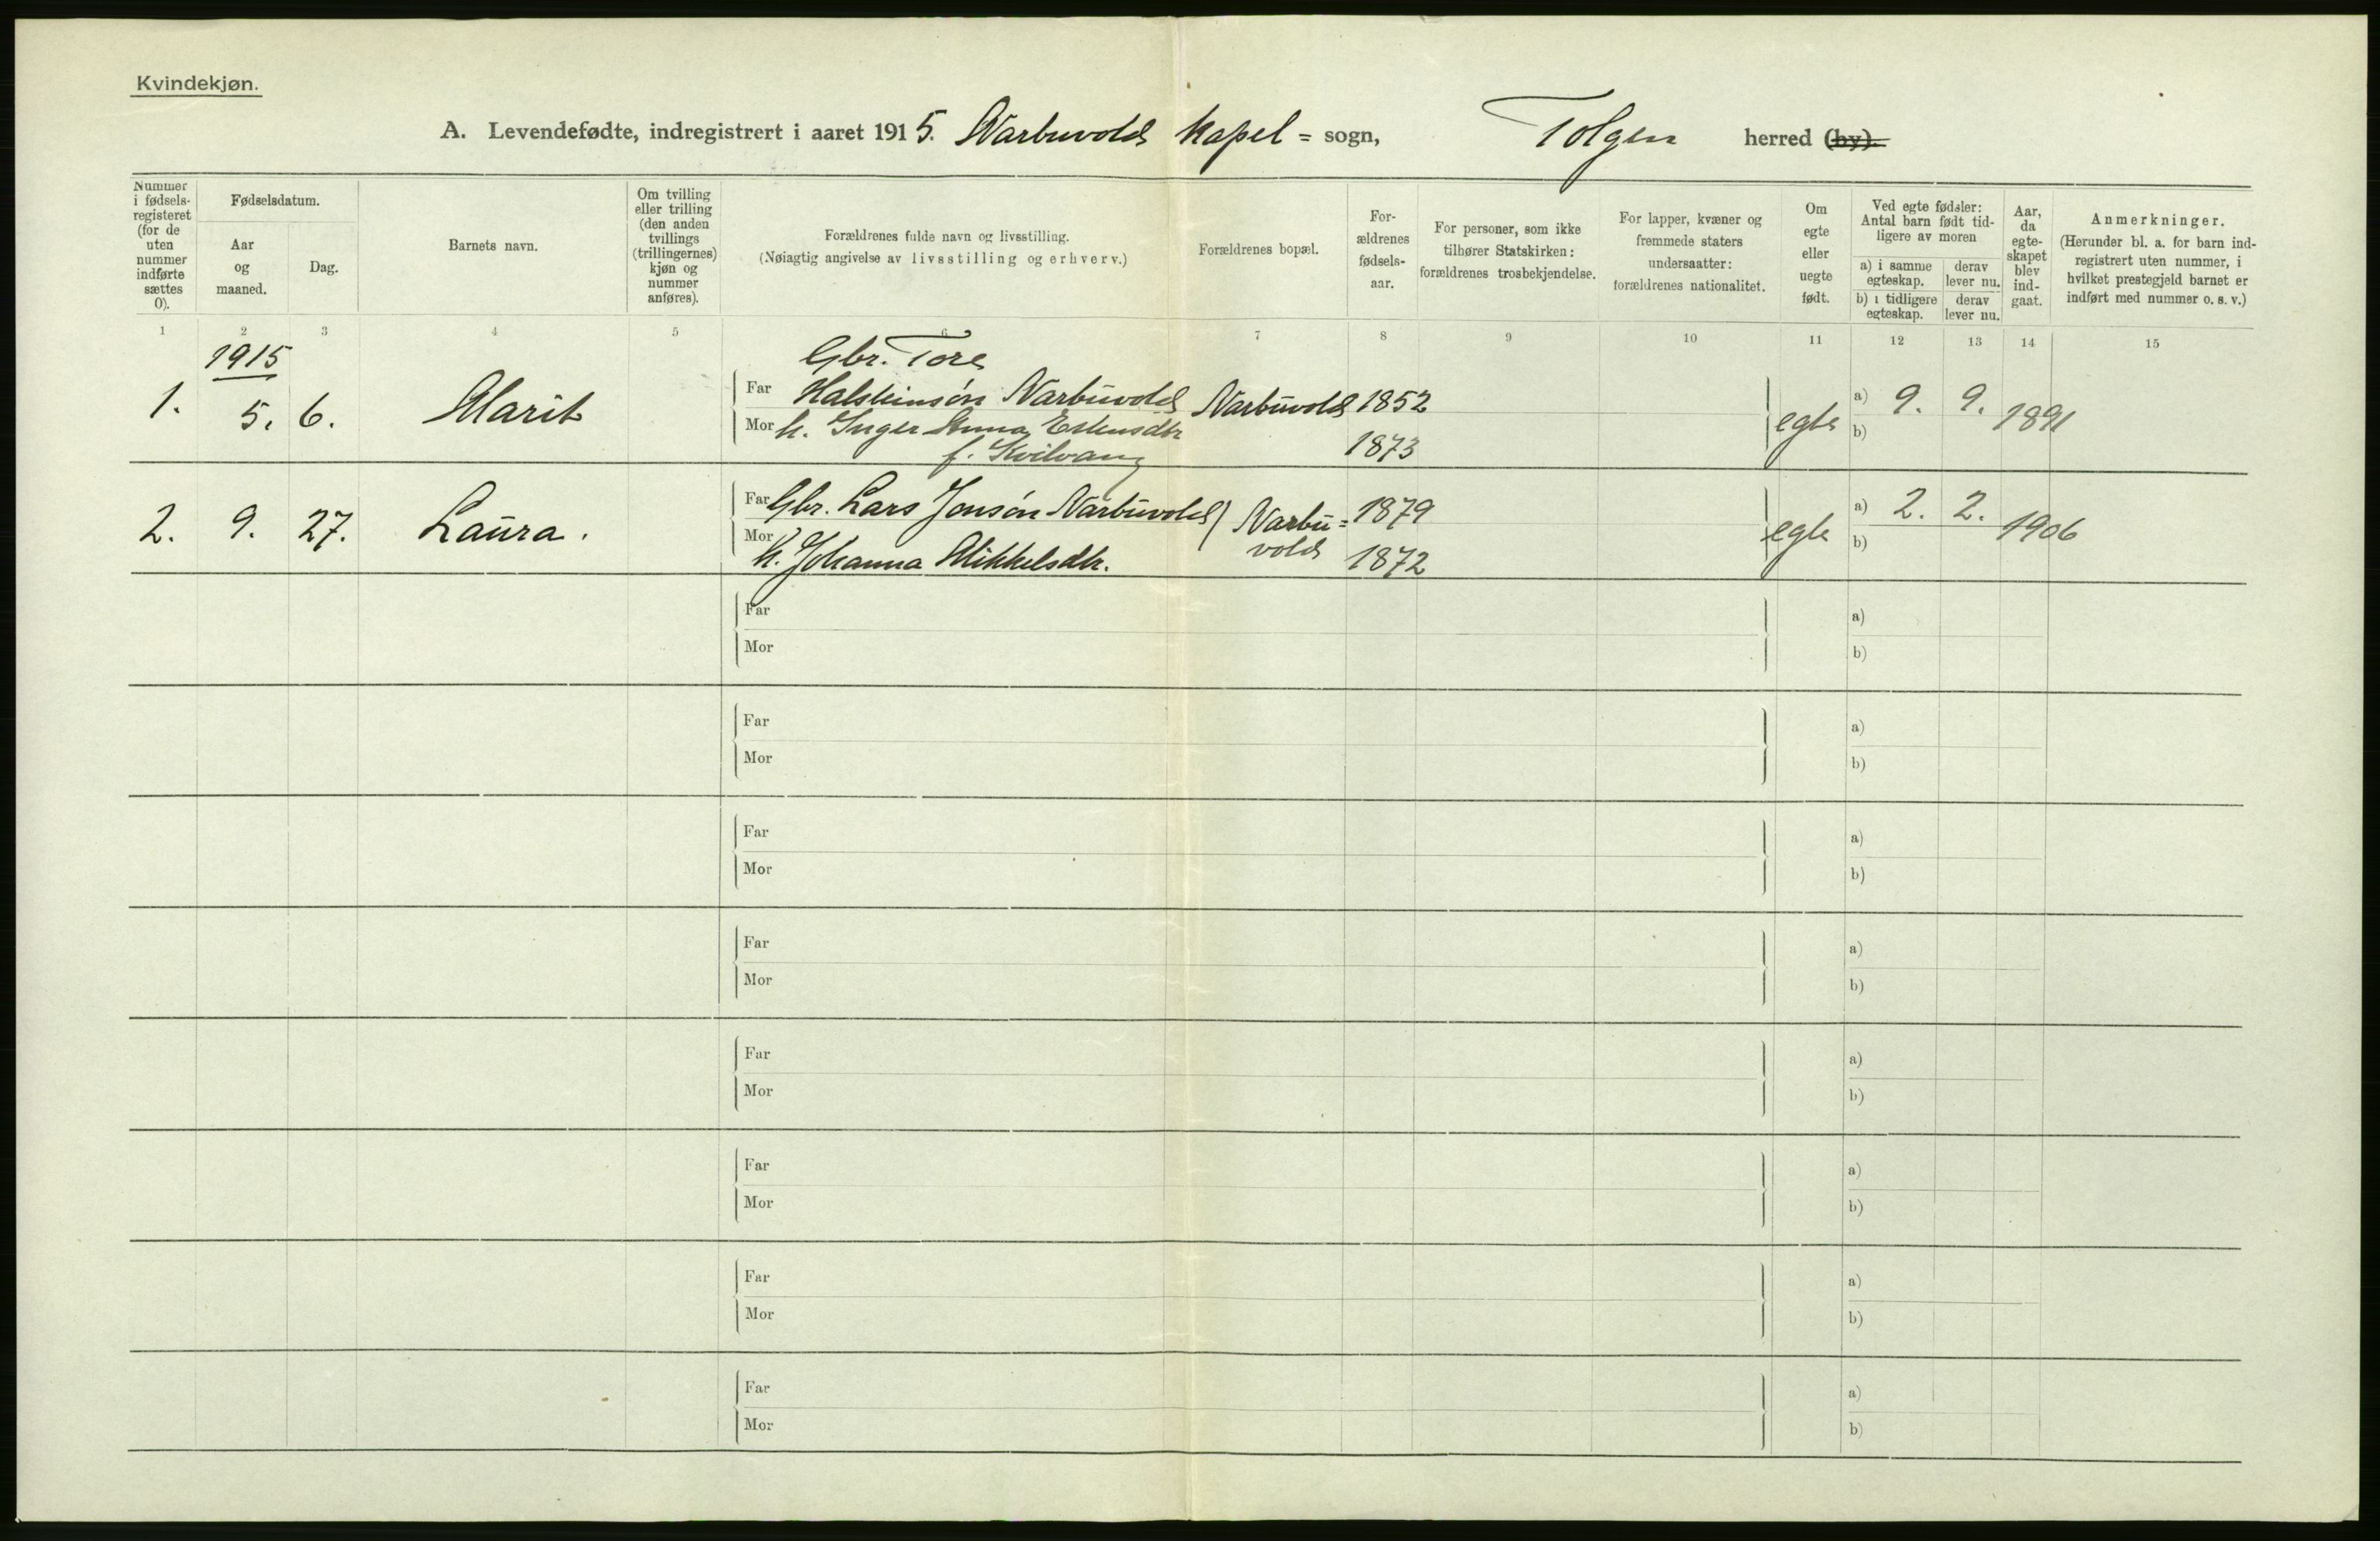 Kvindekjøn.
A. Levendefødte, indregistrert i aaret 1915. Narbuvold kapel = sogn, Tolgen herred (by).
Nummer i fødsels-registeret (for de uten nummer indførte sættes 0).
Fødselsdatum.
Aar og maaned.
Dag.
Barnets navn.
Om tvilling eller trilling (den anden tvillings (trillingernes) kjøn og nummer anføres).
Forældrenes fulde navn og livsstilling.
(Nøiagtig angivelse av livsstilling og erhverv.)
Forældrenes bopæl.
For-ældrenes fødsels-aar.
For personer, som ikke tilhører Statskirken: forældrenes trosbekjendelse.
For lapper, kvæner og fremmede staters undersaatter: forældrenes nationalitet.
Om egte eller uegte født.
Ved egte fødsler: Antal barn født tid-ligere av moren
a) i samme egteskap.
derav lever nu.
b) i tidligere egteskap.
derav lever nu.
Aar, da egte-skapet blev ind-gaat.
Anmerkninger.
(Herunder bl. a. for barn ind-registrert uten nummer, i hvilket prestegjeld barnet er indført med nummer o. s. v.)
1 2 3 4 5 6 7 8 9 10 11 12 13 14 15
1915 Gbr. Tore
1. 5. 6. Marit Far Halsteinsøn Narbuvold Narbuvold 1852 egte a) 9. 9. 1891
Mor k. Inger Anna Estensdtr 1873 b)
f. Kvilvang
2. 9. 27. Laura. Far Gbr. Lars Jonsøn Narbuvold Narbu= 1879 egte a) 2. 2. 1906
Mor k. Johanna Mikkelsdtr. vold 1872 b)
Far a)
Mor b)
Far a)
Mor b)
Far a)
Mor b)
Far a)
Mor b)
Far a)
Mor b)
Far a)
Mor b)
Far a)
Mor b)
Far a)
Mor b)